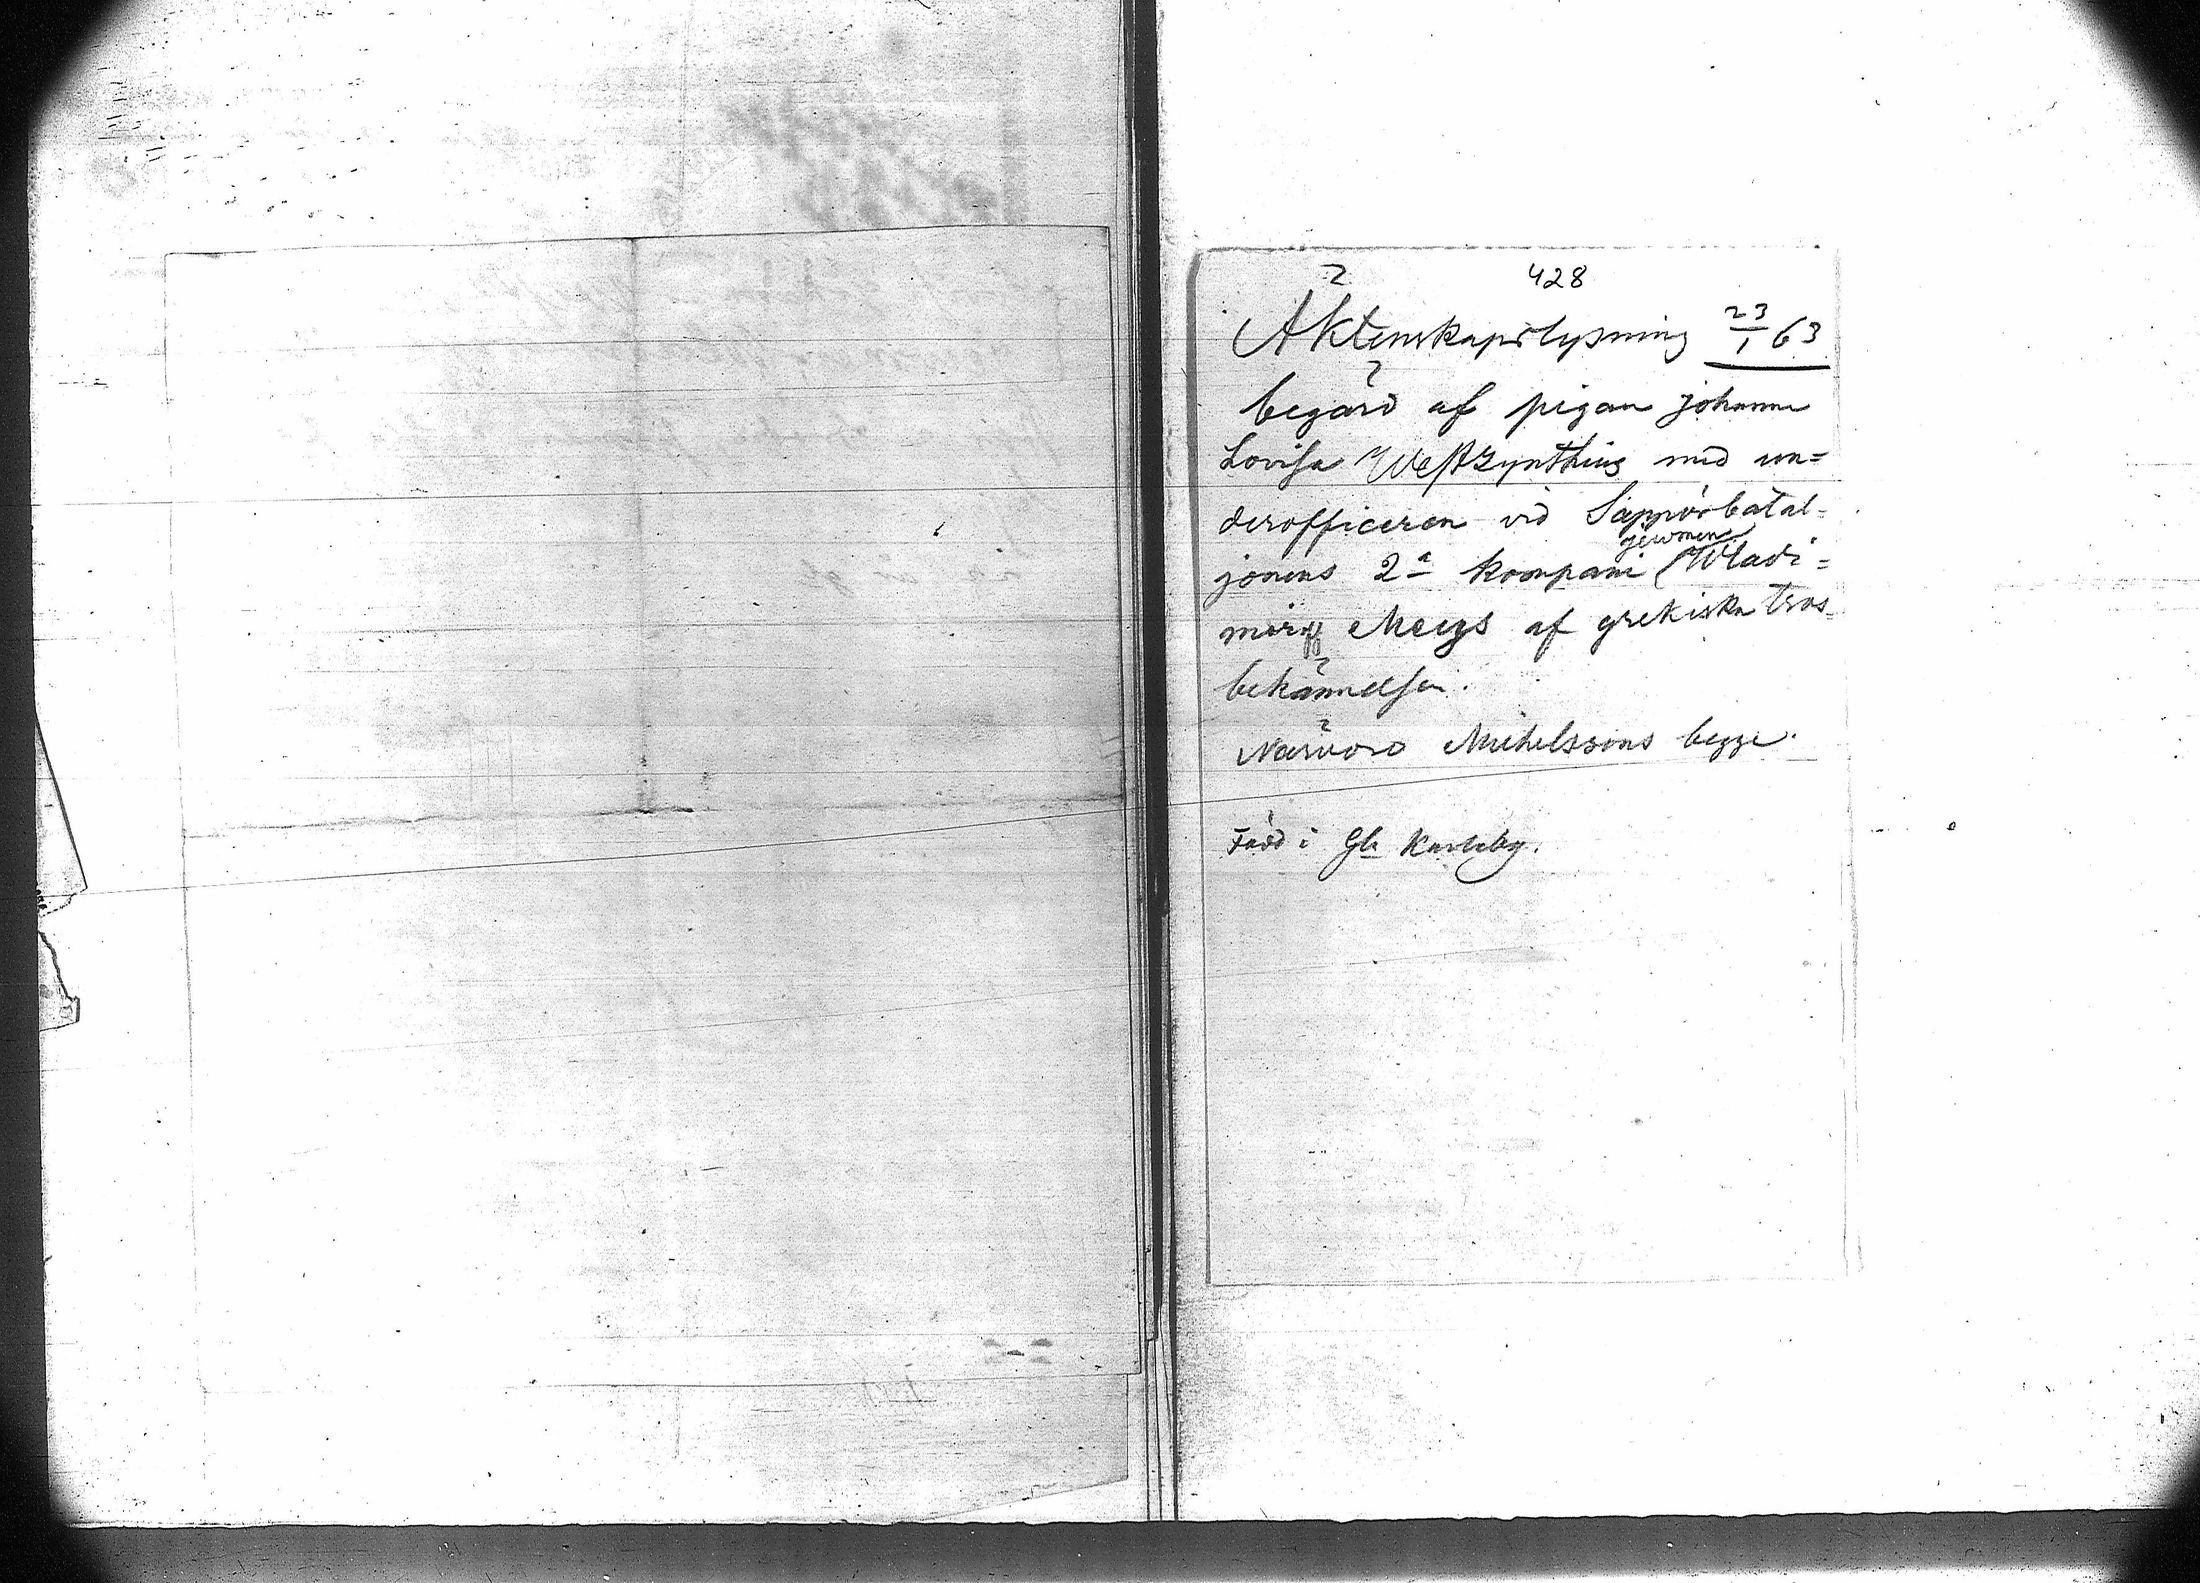 428
Äktenskapslysning 23/1 63
begärd af pigan Johanna
Lovisa Westzynthius med un=
derofficeren vid Sappörbatal=
jonens 2a kompani Wladi=
mir Meys af grekiska tros=
bekännelsen.
Närvoro Michelssons begge.
Född i Gla Karleby.